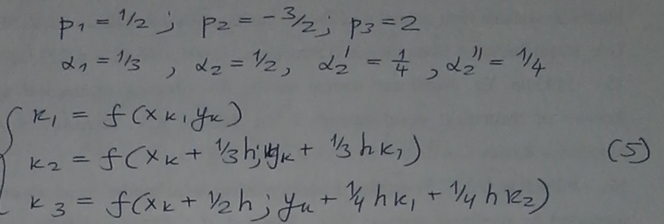 p₁ = 1/2 ; p₂ = -3/2 ; p₃ = 2
α₁ = 1/3 , α₂ = 1/2, α₂' = 1/4 , α₂'' = 1/4
k₁ = f(xₖ, yₖ)
k₂ = f(xₖ + 1/3 h; yₖ + 1/3 h k₁) (5)
k₃ = f(xₖ + 1/2 h ; yₖ + 1/4 h k₁ + 1/4 h k₂)